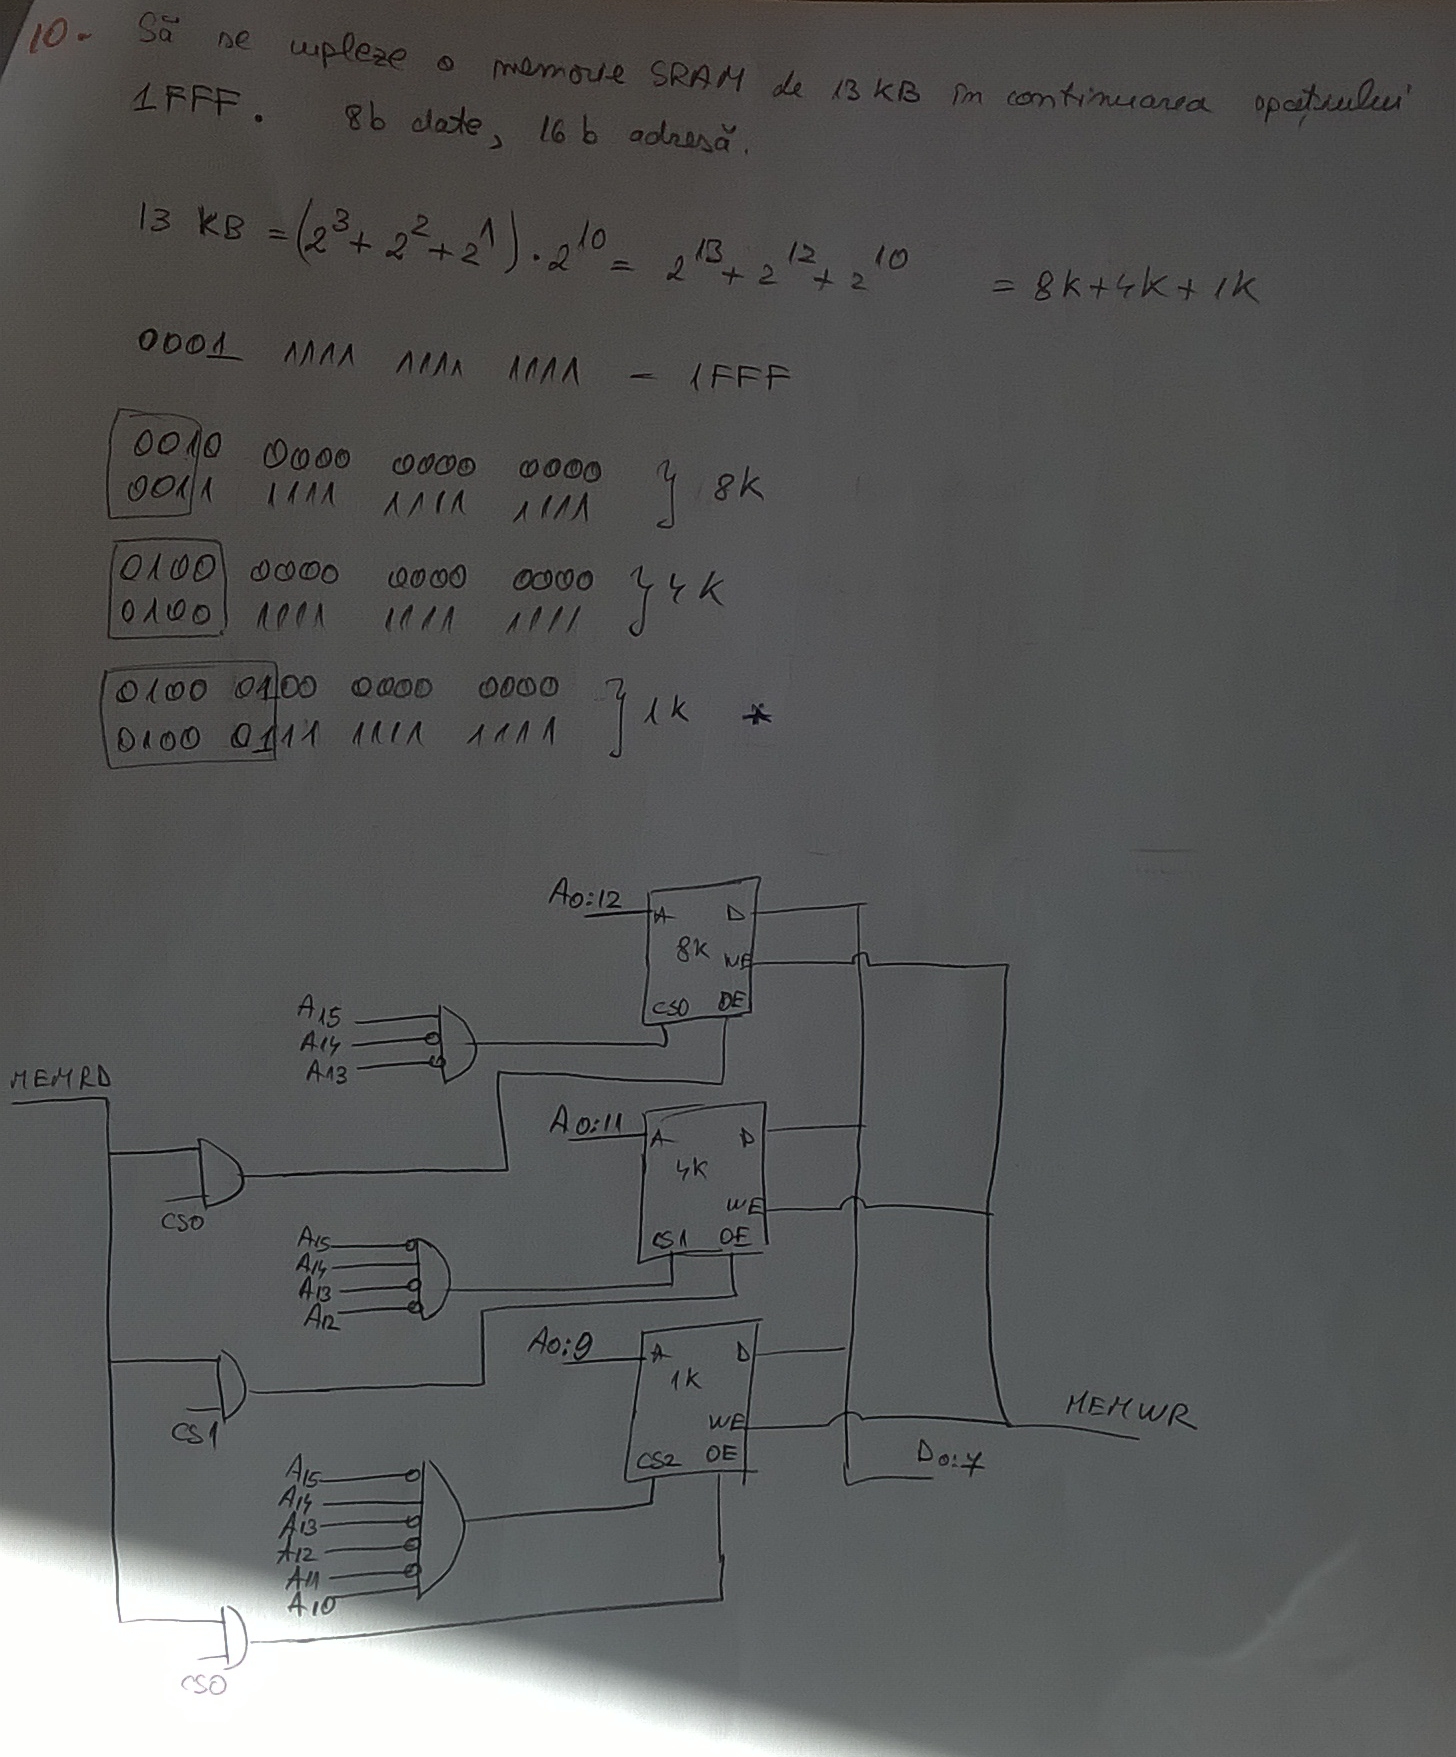 10. Să se cupleze o memorie SRAM de 13 KB în continuarea spațiului
1FFF. 8b date, 16 b adresă.
13 KB = (2^3 + 2^2 + 2^1) · 2^10 = 2^13 + 2^12 + 2^10 = 8K+4K+1K
0001 1111 1111 1111 - 1FFF
0010 0000 0000 0000
0011 1111 1111 1111 } 8K
0100 0000 0000 0000
0100 1111 1111 1111 } 4K
0100 0100 0000 0000
0100 0111 1111 1111 } 1K *
A0:12 A D
8K WE
CS0 OE
A15
A14
A13
MEMRD
CS0
A0:11 A D
4K
WE
CS1 OE
A15
A14
A13
A12
A0:9 A D
1K
WE
CS2 OE
MEMWR
D0:7
CS1
A15
A14
A13
A12
A11
A10
CS0